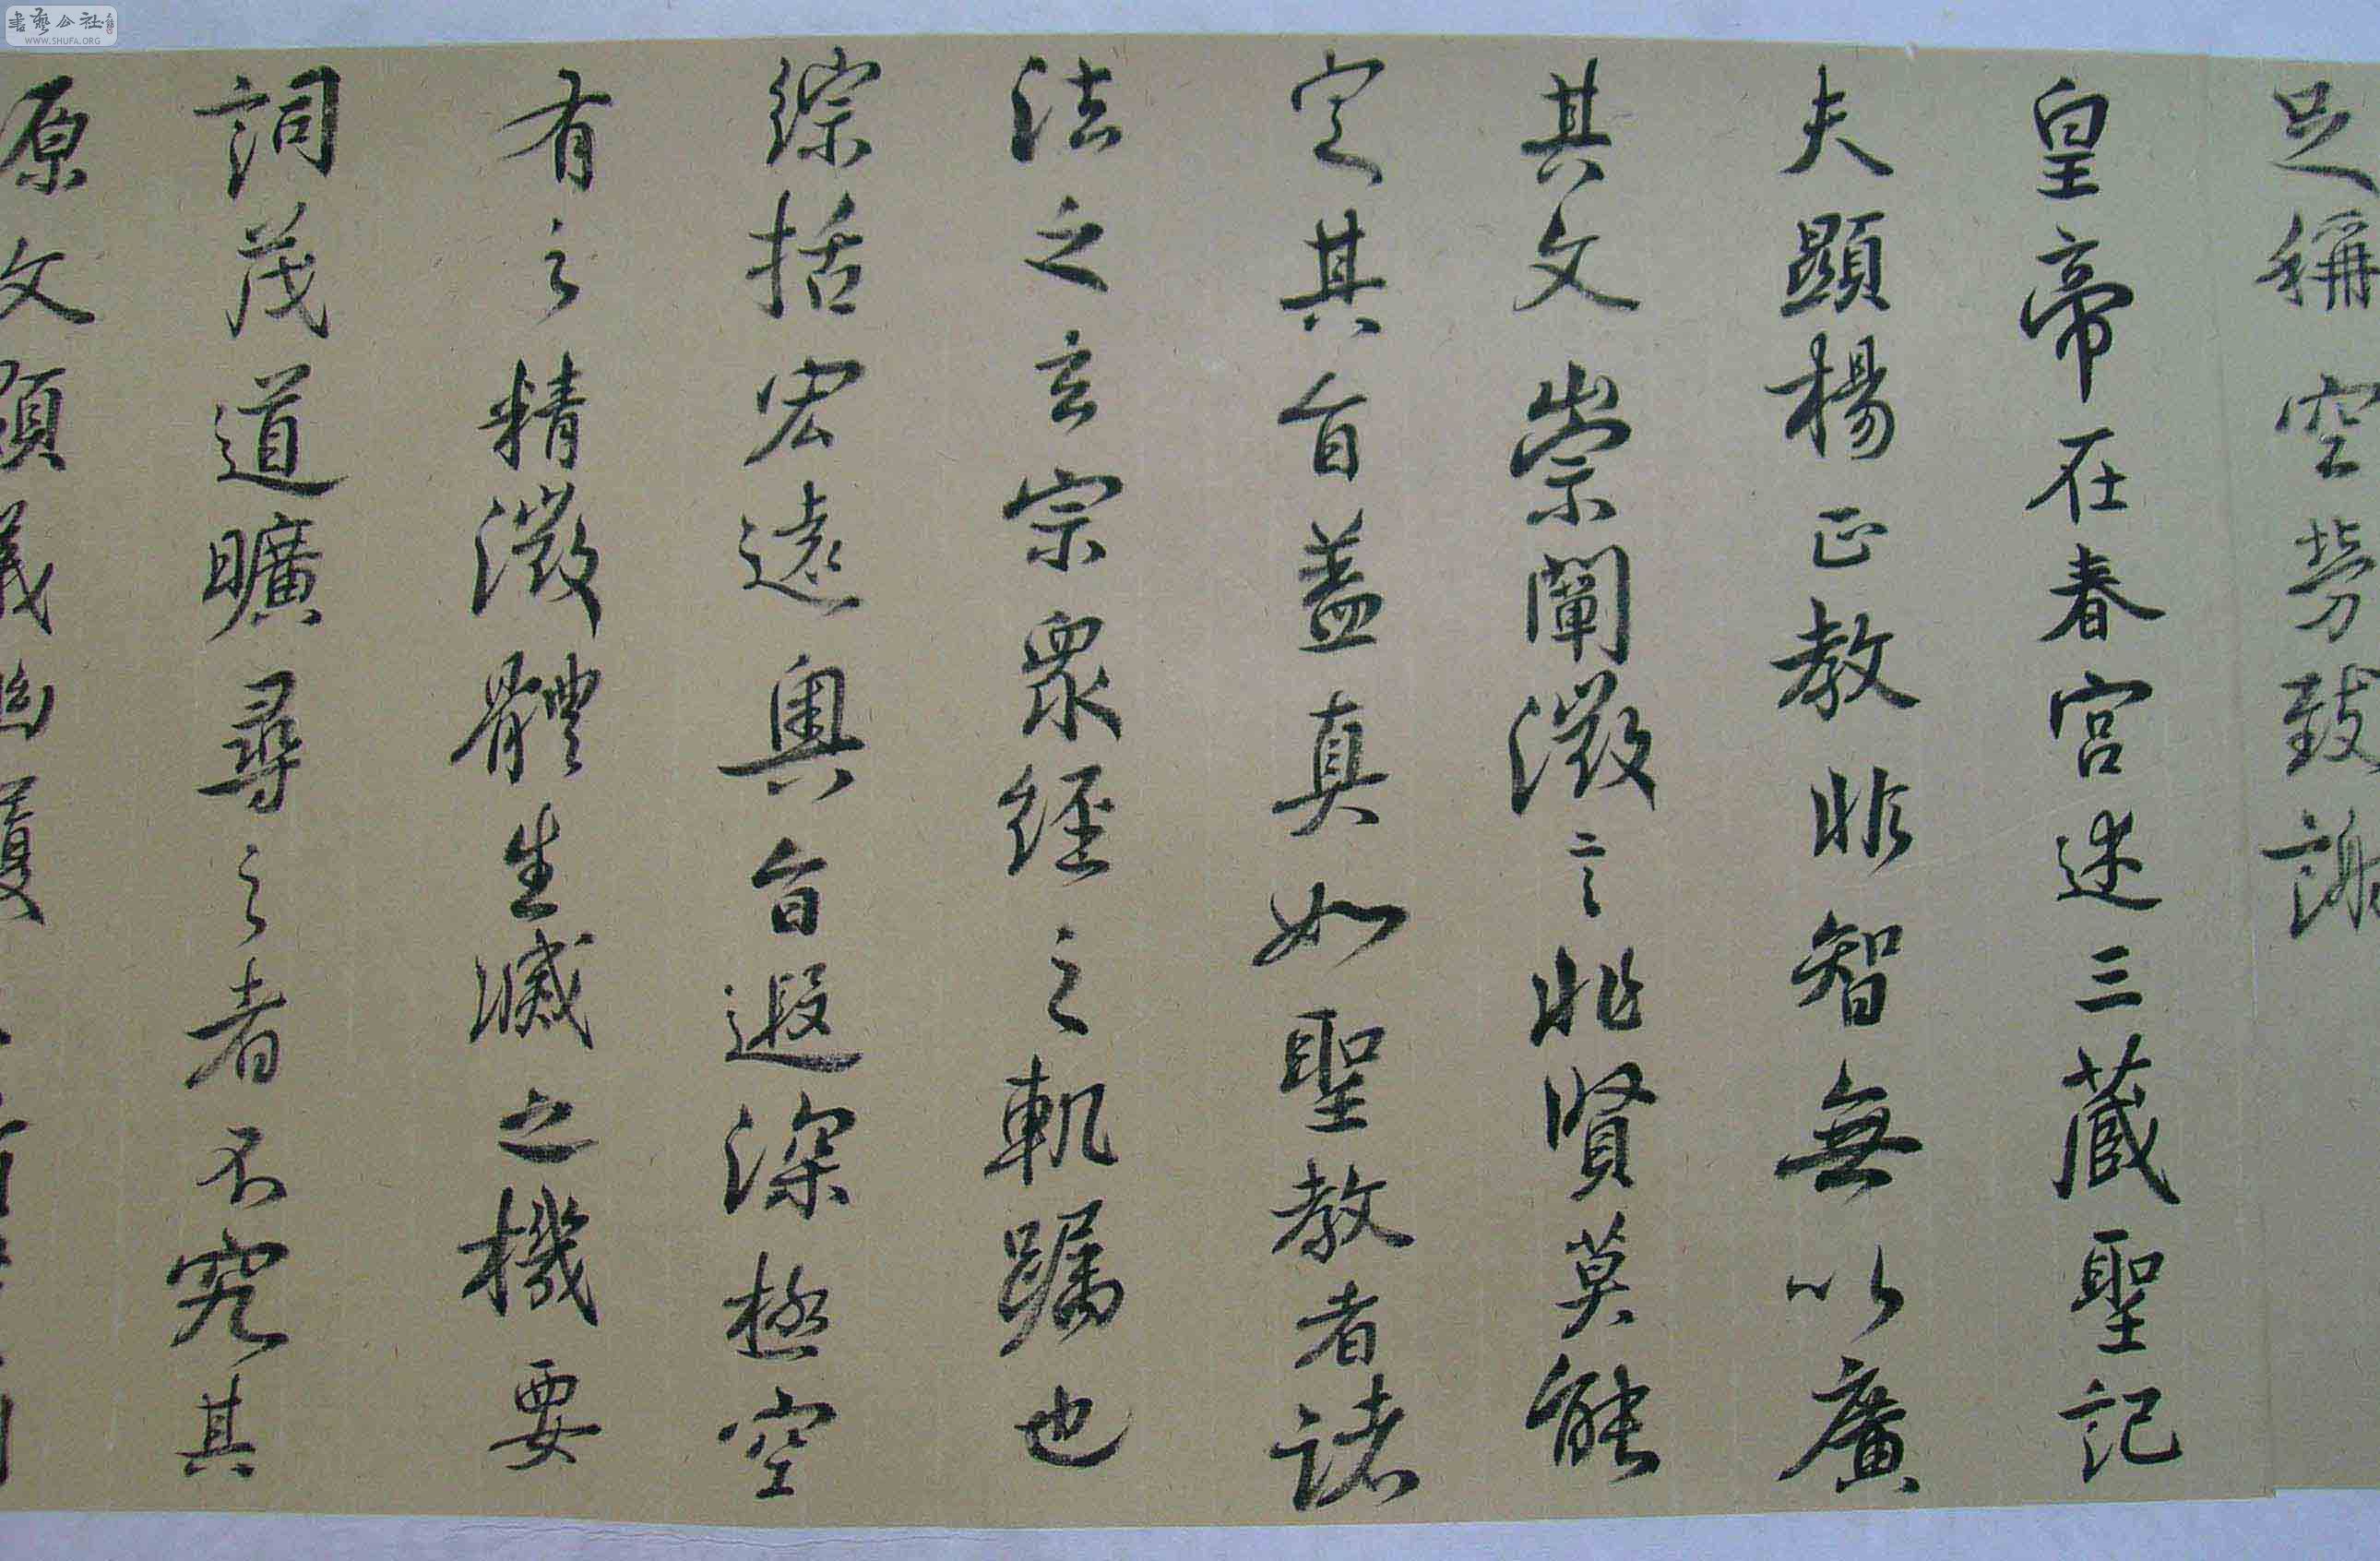 足稱空勞致謝
皇帝在春宮述三藏聖記
夫顯楊正教非智無以廣
其文崇闡微言非賢莫能
定其旨蓋真如聖教者諸
法之玄宗眾經之軌躅也
綜括宏遠奧旨遐深極空
有之精微體生滅之機要
詞茂道曠尋之者不究其
源文顯義幽履
書藝公社
WWW.SHUFA.ORG